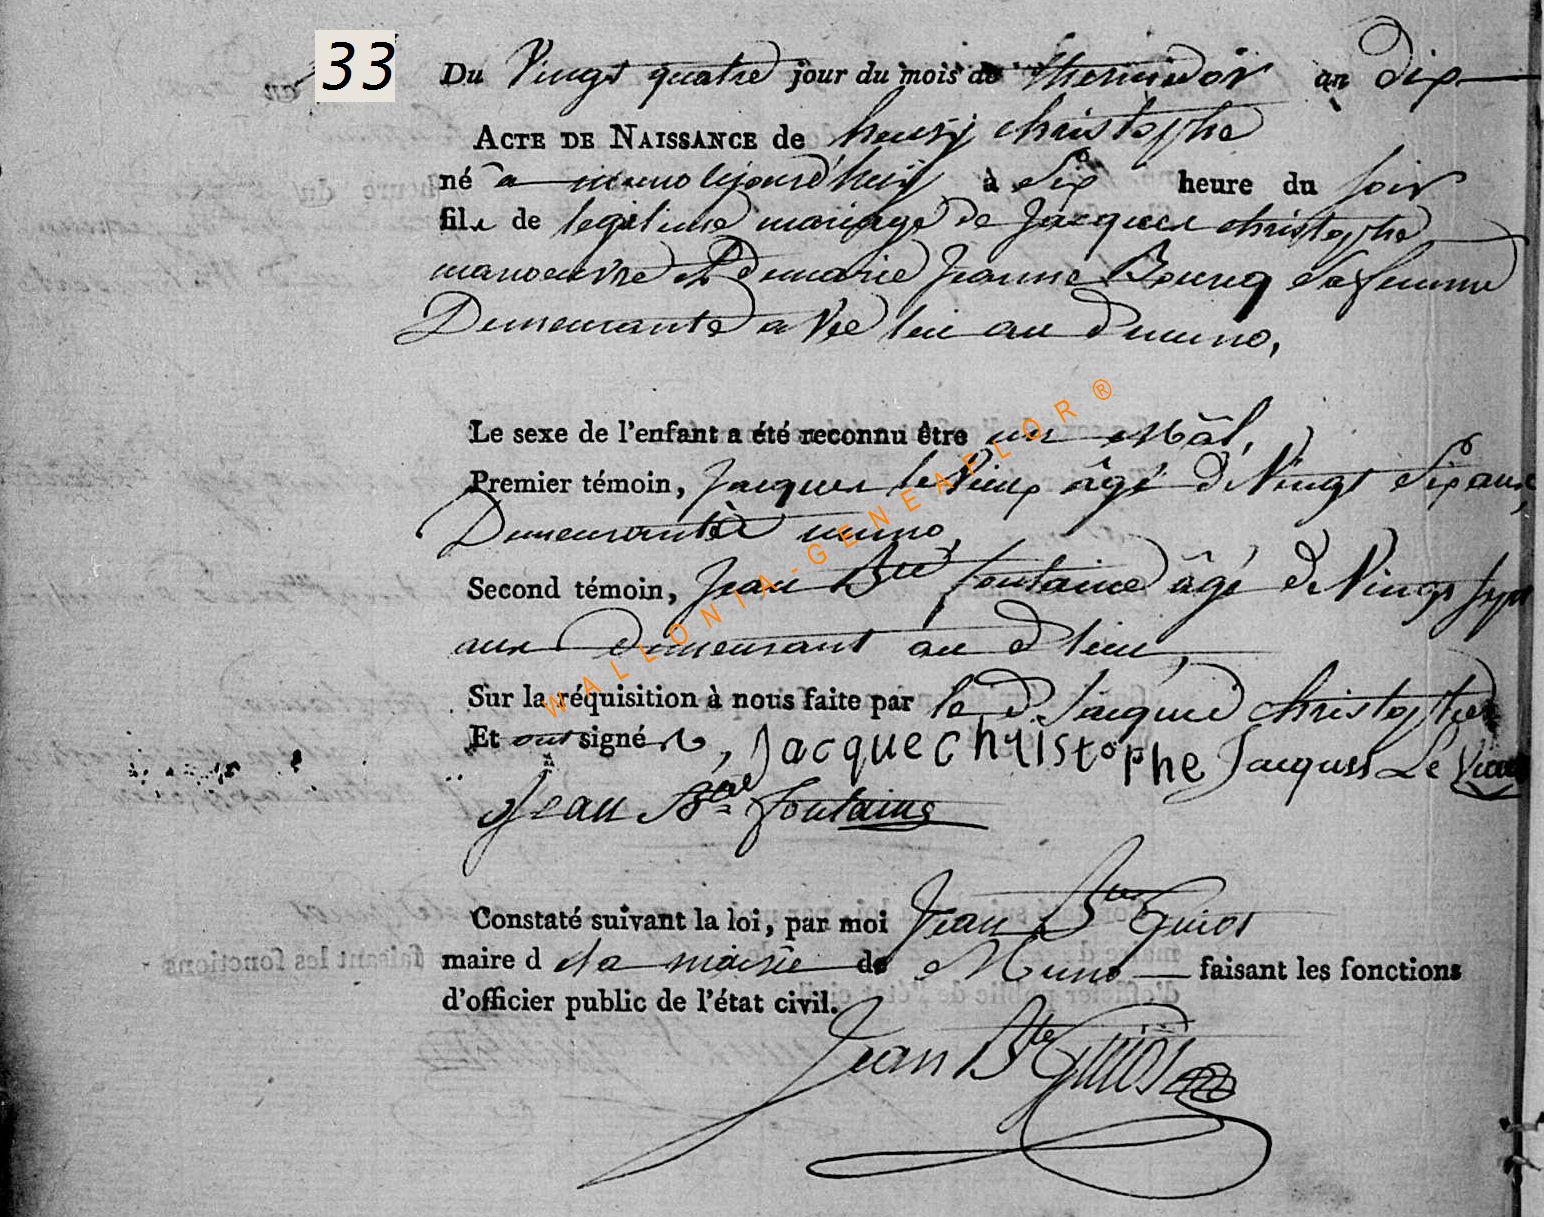 33
Du Vingt quatre jour du mois de thermidor an dix
ACTE DE NAISSANCE de henry christophe
né a muno lejourd'huy à Six heure du soir
fils de legitime mariage de Jacques christophe
manoeuvre et De marie Jeanne Bourg sa femme
Demeurante avec lui au d muno,
Le sexe de l'enfant a été reconnu être un Mâl,
Premier témoin, Jacques le Vieux âgé de Vingt Six ans,
Demeurant à muno,
Second témoin, Jean Bte fontaine âgé de Vingt sept
ans Demeurant au d lieu,
Sur la réquisition à nous faite par le d. Jacque christophe
Et ont signé, Jacque christophe Jacques Le Vieux
Jean Bte fontaine
Constaté suivant la loi, par moi Jean Bte Guiot
maire d la mairie de Muno faisant les fonctions
d'officier public de l'état civil.
Jean Bte Guiot
WALLONIA-GENEAFLOR ®